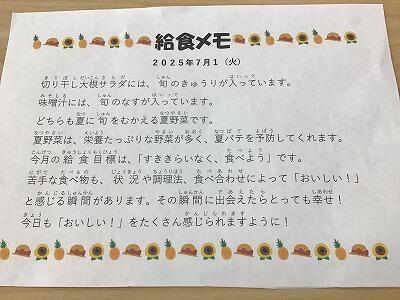 給食メモ
2025年7月1（火）
切り干し大根サラダには、旬のきゅうりが入っています。
味噌汁には、旬のなすが入っています。
どちらも夏に旬をむかえる夏野菜です。
夏野菜は、栄養たっぷりな野菜が多く、夏バテを予防してくれます。
今月の給食目標は、「すききらいなく、食べよう」です。
苦手な食べ物も、状況や調理法、食べ合わせによって「おいしい！」
と感じる瞬間があります。その瞬間に出会えたらとっても幸せ！
今日も「おいしい！」をたくさん感じられますように！